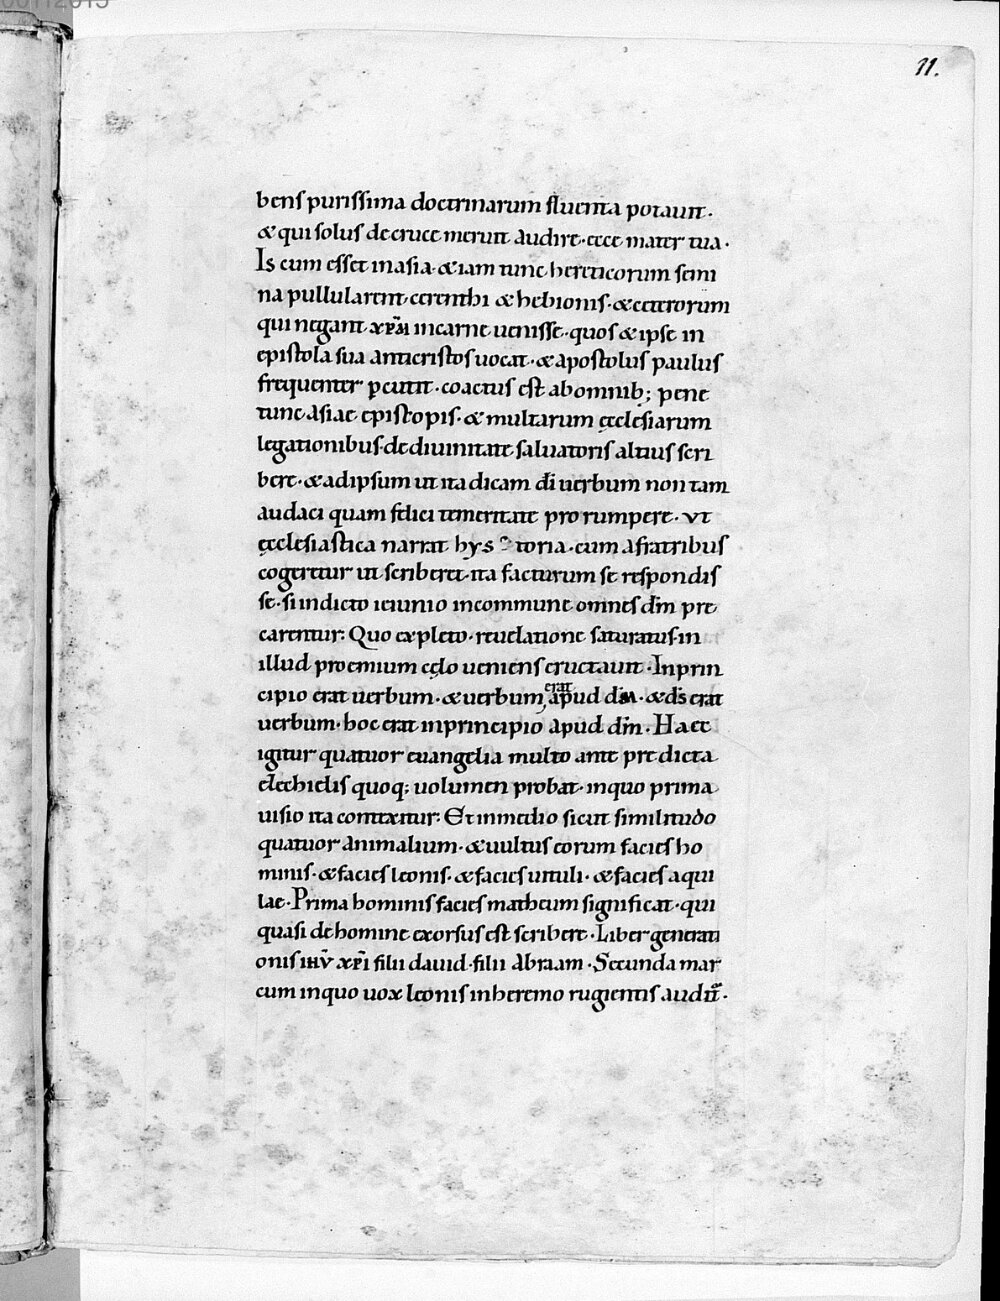 11.
bens purissima doctrinarum fluenta potauit·
& qui solus de cruce meruit audire· ecce mater tua·
Is cum esset in asia· & iam tunc hereticorum semi
na pullularent· cerenthi & hebionis· & ceterorum
qui negant xp̄m in carne uenisse· quos & ipse in
epistola sua anticristos uocat· & apostolus paulus
frequenter ꝑcutit· coactus est ab omnib; pene
tunc asiae episcopis· & multarum ęcclesiarum
legationibus· de diuinitate saluatoris altius scri
bere· & ad ipsum ut ita dicam dī uerbum non tam
audaci quam felici temeritate prorumpere· vt
ęcclesiastica narrat hys toria· cum a fratribus
cogeretur ut scriberet· ita facturum se respondis
se· si indicto ieiunio in commune omnes dm̄ pre
carentur: Quo expleto· reuelatione saturatus· in
illud proemium cęlo ueniens eructauit· In prin
cipio erat uerbum· & uerbum, erat apud dm̄· & ds̄ erat
uerbum· hoc erat in principio apud dm̄· Haec
igitur quatuor euangelia multo ante predicta
e̜zechielis quoq; uolumen probat· in quo prima
uisio ita contexitur: Et in medio sicut similitudo
quatuor animalium· & uultus eorum facies ho
minis· & facies leonis· & facies uituli· & facies aqui
lae· Prima hominis facies matheum significat· qui
quasi de homine exorsus est scribere· Liber generati
onis ihū xp̄i filii dauid· filii abraam· Secunda mar
cum in quo uox leonis in heremo rugientis audit̄·